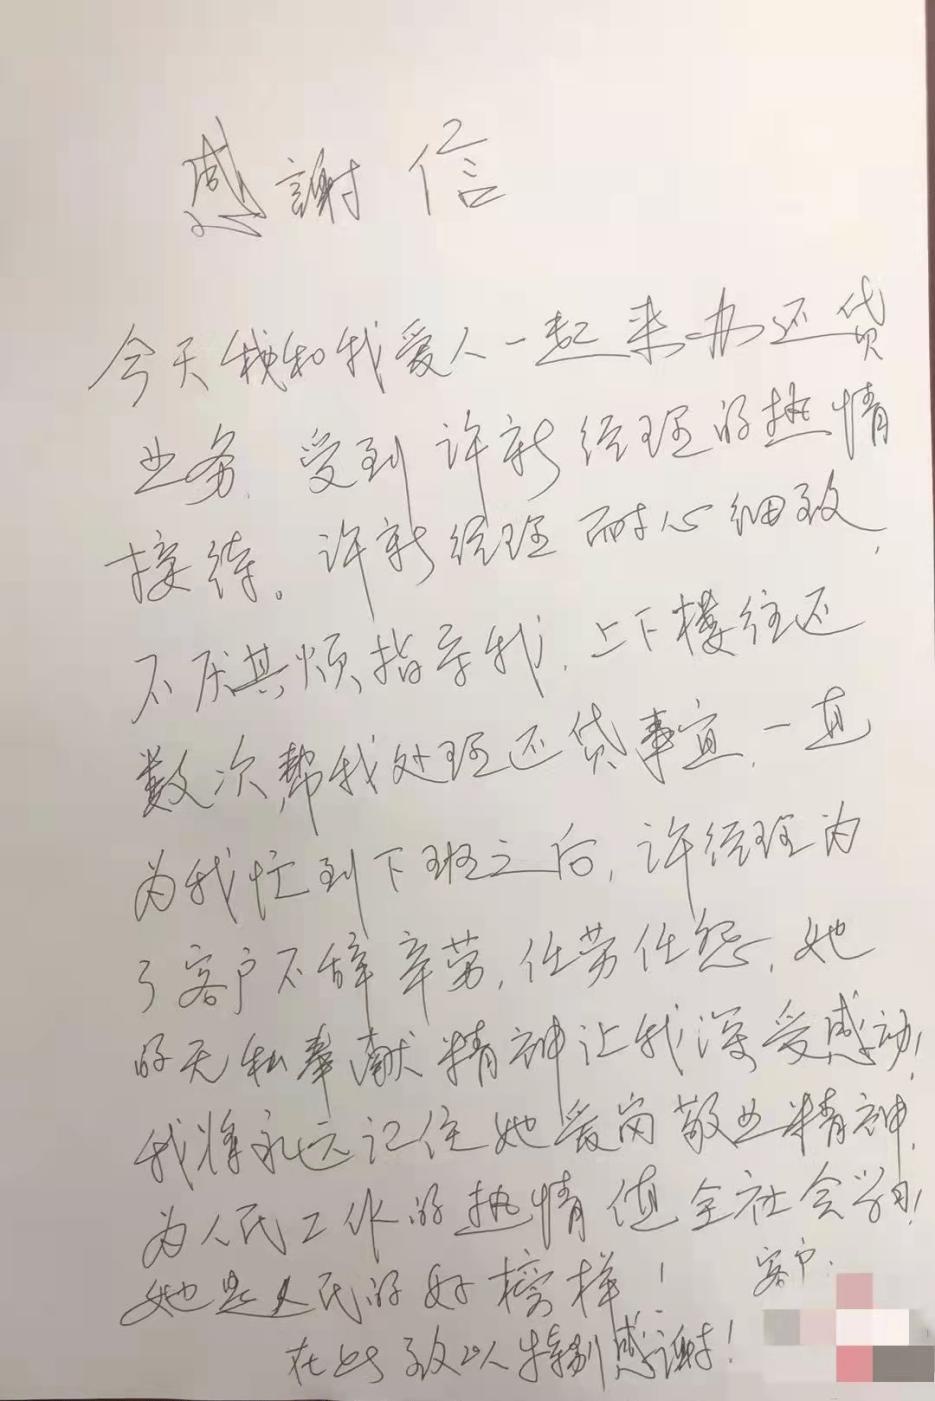 感謝信
今天我和我爱人一起来办还贷
业务，受到许新经理的热情
接待。许新经理耐心细致，
不厌其烦指导我，上下楼往还
数次帮我处理还贷事宜，一直
为我忙到下班之后，许经理为
了客户不辞辛劳，任劳任怨，她
的无私奉献精神让我深受感动！
我将永远记住她爱岗敬业精神，
为人民工作的热情值全社会学习！
她是人民的好榜样！
客户：
在此致以特别感谢！